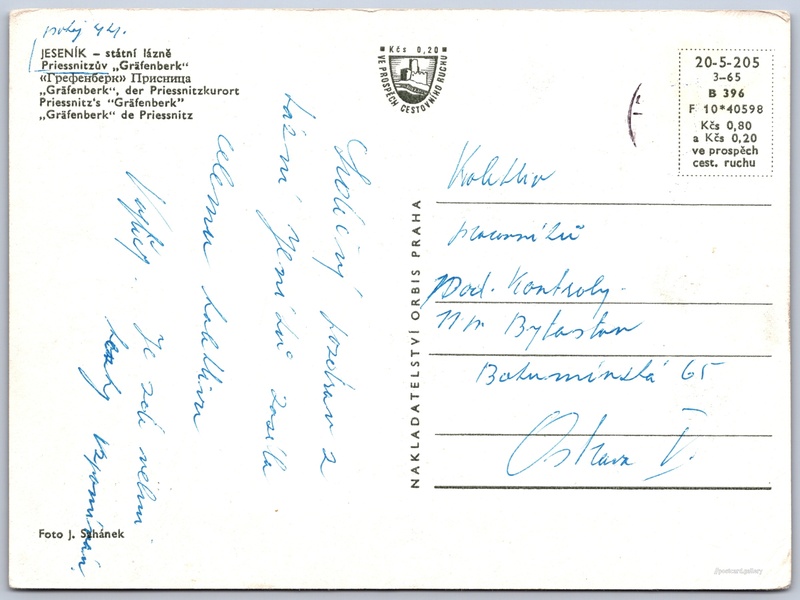 JESENÍK – státní lázně
Priessnitzův „Gräfenberk“
«Грефенберк» Присница
„Gräfenberk“, der Priessnitzkurort
Priessnitz's “Gräfenberk”
„Gräfenberk“ de Priessnitz
Kčs 0,20
VE PROSPĚCH CESTOVNÍHO RUCHU
20-5-205
3–65
B 396
F 10*40598
Kčs 0,80
a Kčs 0,20
ve prospěch
cest. ruchu
Srdečný pozdrav z
lázní Jeseníků zasílá
celému kolektivu
Je zde velmi
NAKLADATELSTVÍ ORBIS PRAHA
Kolektiv
pracovníků
Kontroly
np Bytostav
Bohumínská 65
Ostrava I.
Foto J. Sehánek
//postcard.gallery